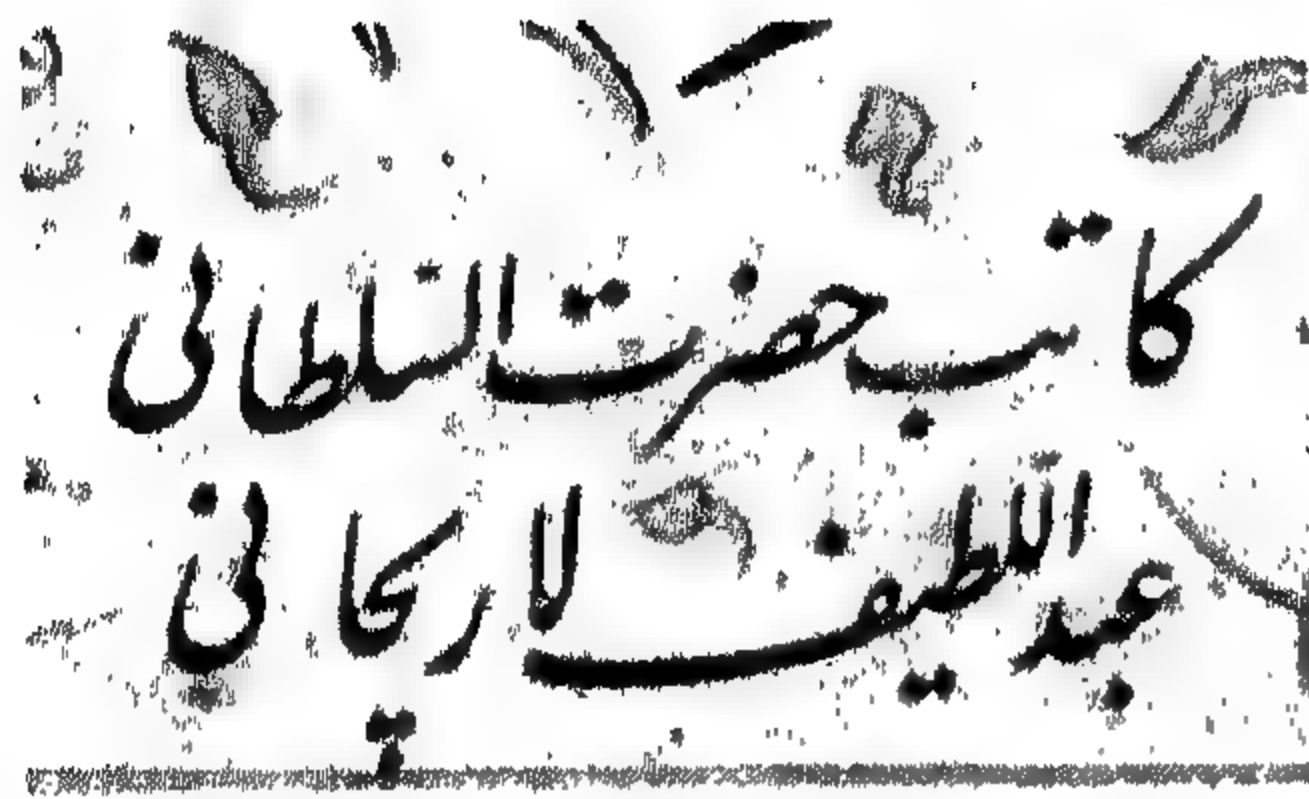 کاتب حضرت السلطانی
عبداللطیف لاریجانی